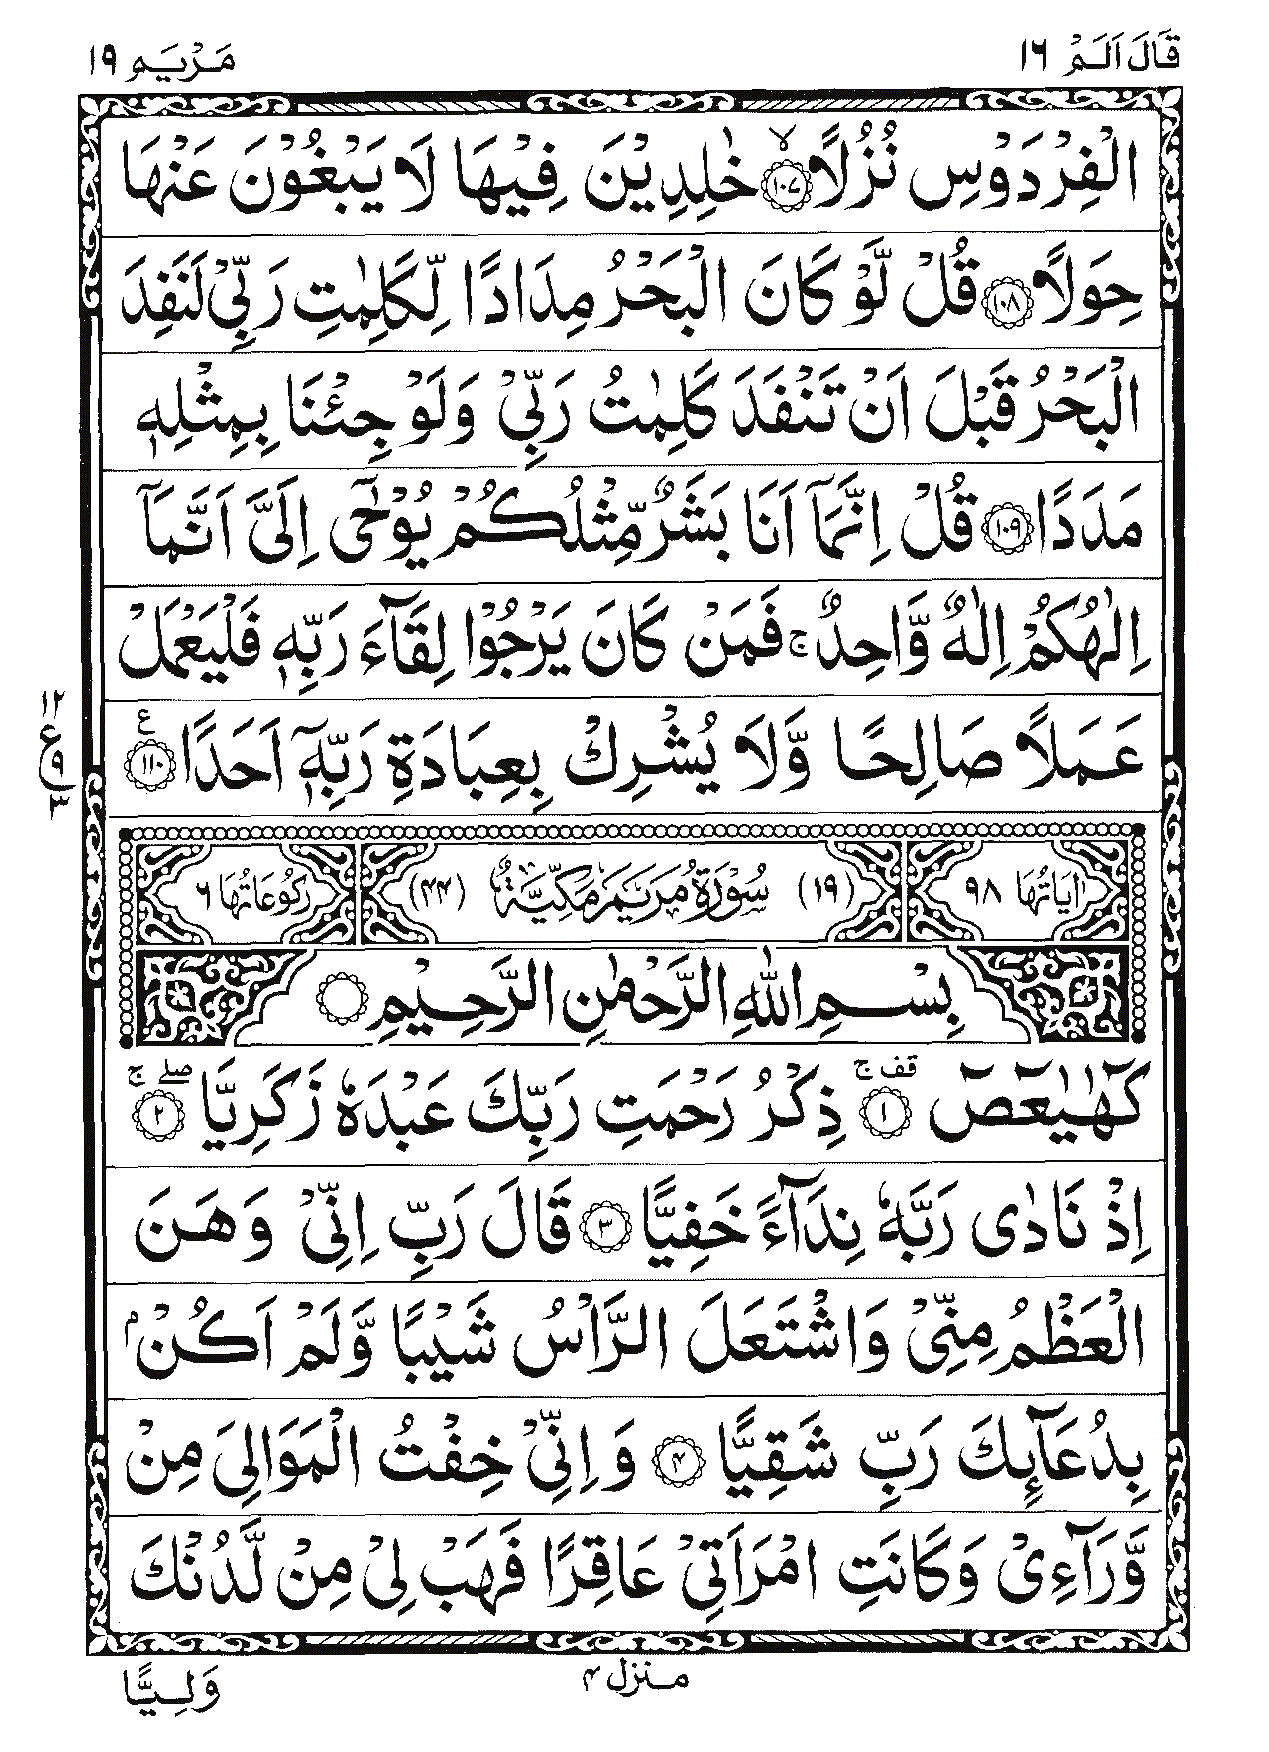 قَالَ اَلَمْ ١٦
مَرْيَم ١٩
الْفِرْدَوْسِ نُزُلًا ۙ﴿١٠٧﴾ خٰلِدِيْنَ فِيْهَا لَا يَبْغُوْنَ عَنْهَا
حِوَلًا ﴿١٠٨﴾ قُلْ لَّوْ كَانَ الْبَحْرُ مِدَادًا لِّكَلِمٰتِ رَبِّيْ لَنَفِدَ
الْبَحْرُ قَبْلَ اَنْ تَنْفَدَ كَلِمٰتُ رَبِّيْ وَلَوْ جِئْنَا بِمِثْلِهٖ
مَدَدًا ﴿١٠٩﴾ قُلْ اِنَّمَآ اَنَا بَشَرٌ مِّثْلُكُمْ يُوْحٰٓى اِلَيَّ اَنَّمَآ
اِلٰهُكُمْ اِلٰهٌ وَّاحِدٌ ۚ فَمَنْ كَانَ يَرْجُوْا لِقَآءَ رَبِّهٖ فَلْيَعْمَلْ
عَمَلًا صَالِحًا وَّلَا يُشْرِكْ بِعِبَادَةِ رَبِّهٖٓ اَحَدًا ﴿١١٠﴾ ع
١٢ ع ٩ ٣
اٰيَاتُهَا ٩٨ (١٩) سُوْرَةُ مَرْيَمَ مَكِّيَّةٌ (٤٤) رُكُوْعَاتُهَا ٦
بِسْمِ اللّٰهِ الرَّحْمٰنِ الرَّحِيْمِ
كٓهٰيٰعٓصٓ ﴿١﴾ قف ج ذِكْرُ رَحْمَتِ رَبِّكَ عَبْدَهٗ زَكَرِيَّا ﴿٢﴾ صلے ج
اِذْ نَادٰى رَبَّهٗ نِدَآءً خَفِيًّا ﴿٣﴾ قَالَ رَبِّ اِنِّيْ وَهَنَ
الْعَظْمُ مِنِّيْ وَاشْتَعَلَ الرَّاْسُ شَيْبًا وَّلَمْ اَكُنْۢ
بِدُعَآئِكَ رَبِّ شَقِيًّا ﴿٤﴾ وَاِنِّيْ خِفْتُ الْمَوَالِيَ مِنْ
وَّرَآءِيْ وَكَانَتِ امْرَاَتِيْ عَاقِرًا فَهَبْ لِيْ مِنْ لَّدُنْكَ
منزل ٤
وَلِيًّا